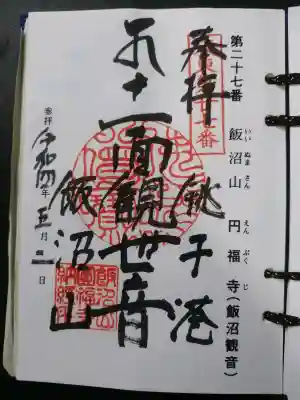 第二十七番 飯沼山 円福寺(飯沼観音)
いいぬまさん えんぷくじ
奉拝 銚子港
十一面観世音
飯沼山
参拝 令和四年 五月 二日